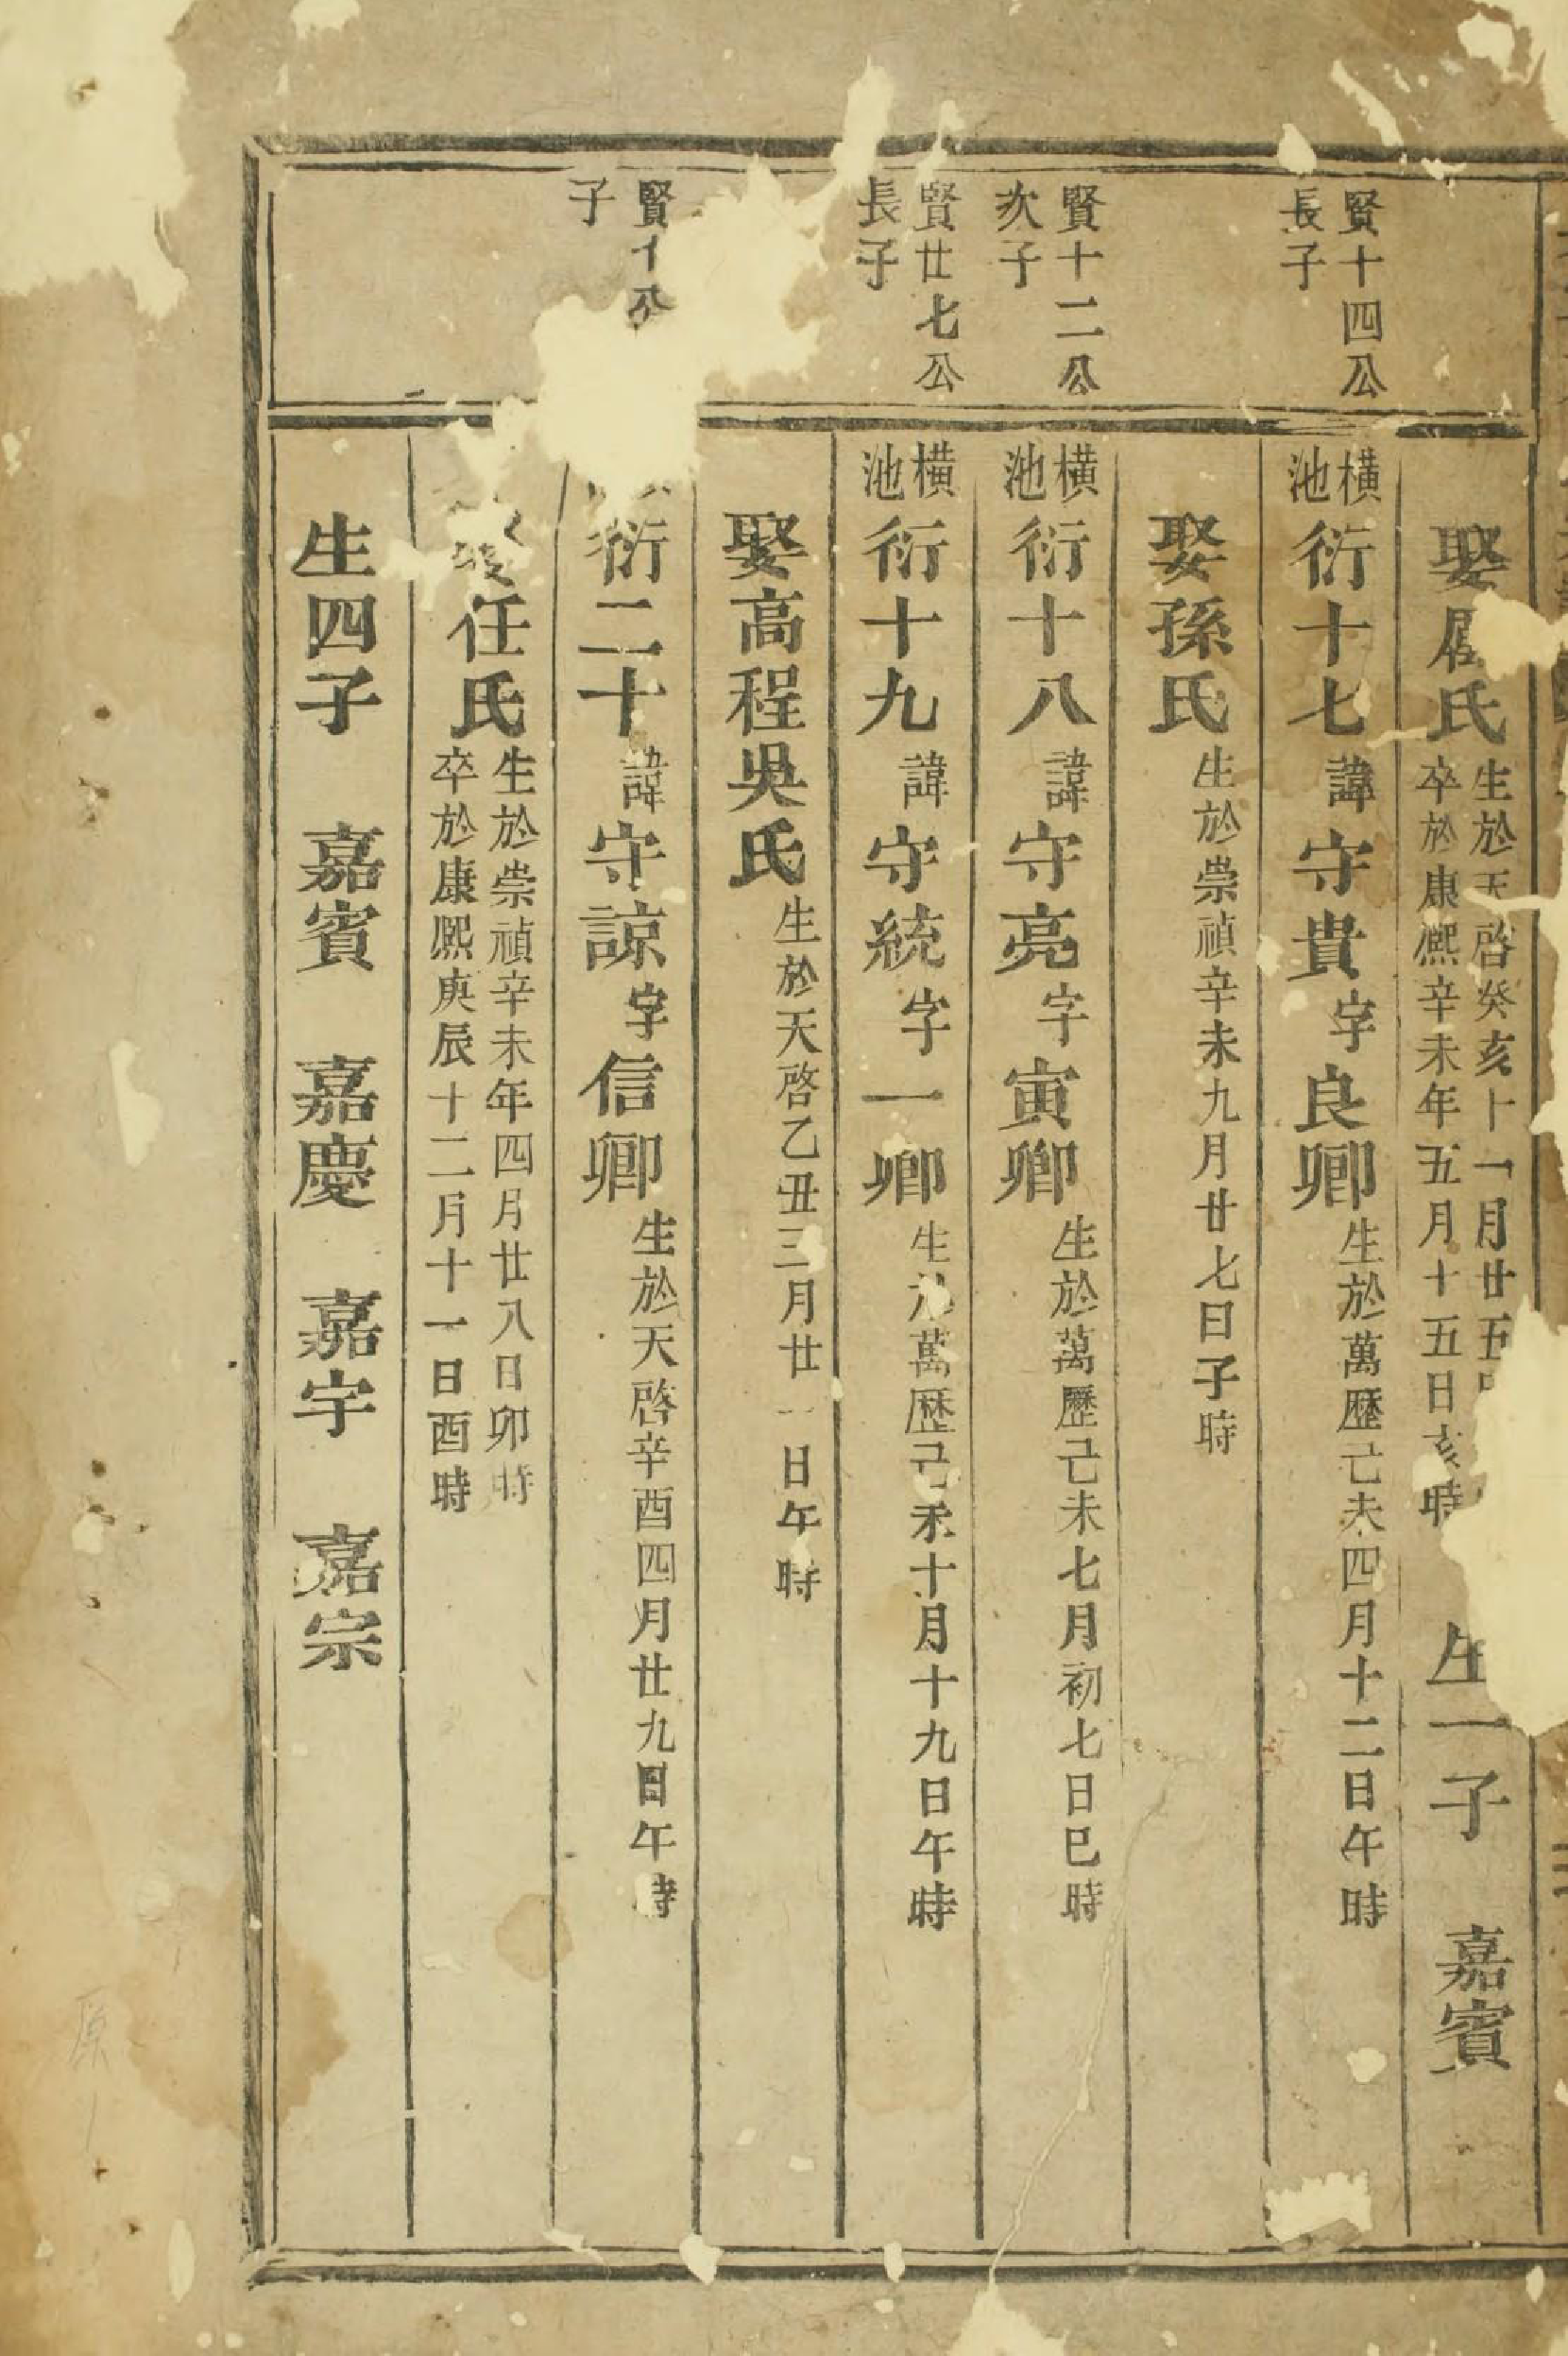 娶屠氏 生於天啓癸亥十一月廿五 卒於康熙辛未年五月十五日亥時 生一子 嘉賓
賢十四公長子
橫池 衍十七 諱守貴 字良卿 生於萬歷己未四月十二日午時
娶孫氏 生於崇禎辛未九月廿七日子時
賢十二公次子
橫池 衍十八 諱守亮 字寅卿 生於萬歷己未七月初七日巳時
賢廿七公長子
橫池 衍十九 諱守統 字一卿 生於萬歷己未十月十九日午時
娶高程吳氏 生於天啓乙丑三月廿一日午時
賢十公 子
衍二十 諱守諒 字信卿 生於天啓辛酉四月廿九日午時
娶任氏 生於崇禎辛未年四月廿八日卯時 卒於康熙庚辰十二月十一日酉時
生四子 嘉賓 嘉慶 嘉宇 嘉宗